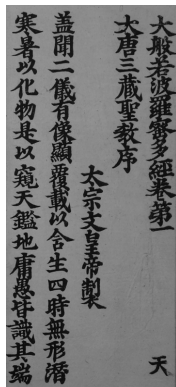 大般若波羅蜜多經卷第一　天
大唐三藏聖教序
太宗文皇帝製
蓋聞二儀有像顯覆載以含生四時無形潛
寒暑以化物是以窺天鑑地庸愚皆識其端